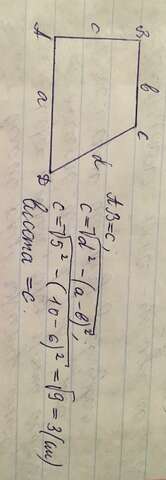 A
c
B
b
C
a
d
D
AB=c;
c=√d²-(a-b)²;
c=√5²-(10-6)²=√9=3(см)
висота=c.